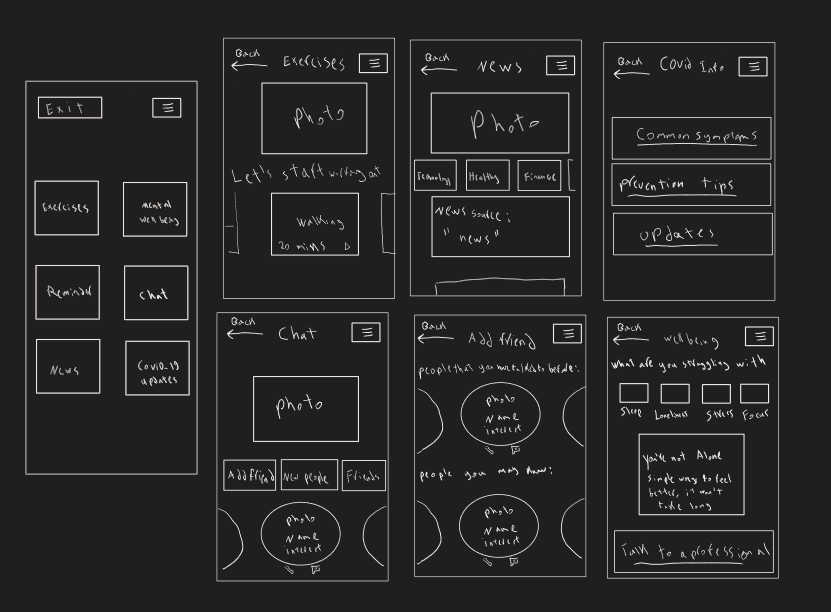 Exit
Exercises
mental
well being
Reminder
chat
News
Covid-19
updates
Back
Exercises
photo
Let's start working out
walking
20 mins
Back
News
Photo
Technology
Healthy
Finance
News source:
"news"
Back
Covid Info
Common symptoms
prevention tips
updates
Back
Chat
photo
Add friend
New people
Friends
photo
Name
interest
Back
Add friend
people that you
before:
photo
Name
interest
people you may know:
photo
Name
interest
Back
wellbeing
what are you struggling with
Sleep
Stress
Focus
you're not Alone
simple way to feel
better, it won't
take long
Talk to a professional